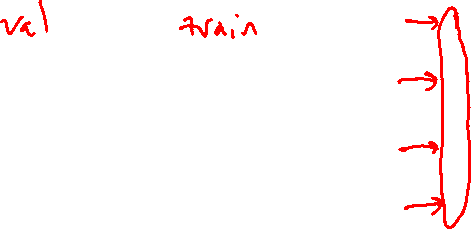 val train